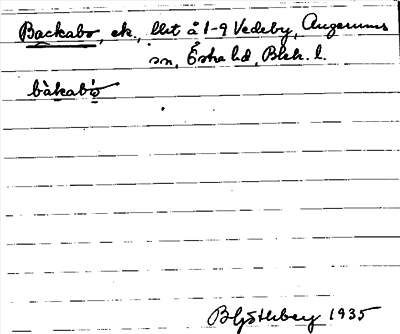 Backabo, ek., lht å 1-9 Vedeby, Augerums
sn, Östra hd, Blek. l.
bàkabó
B Götherberg 1935